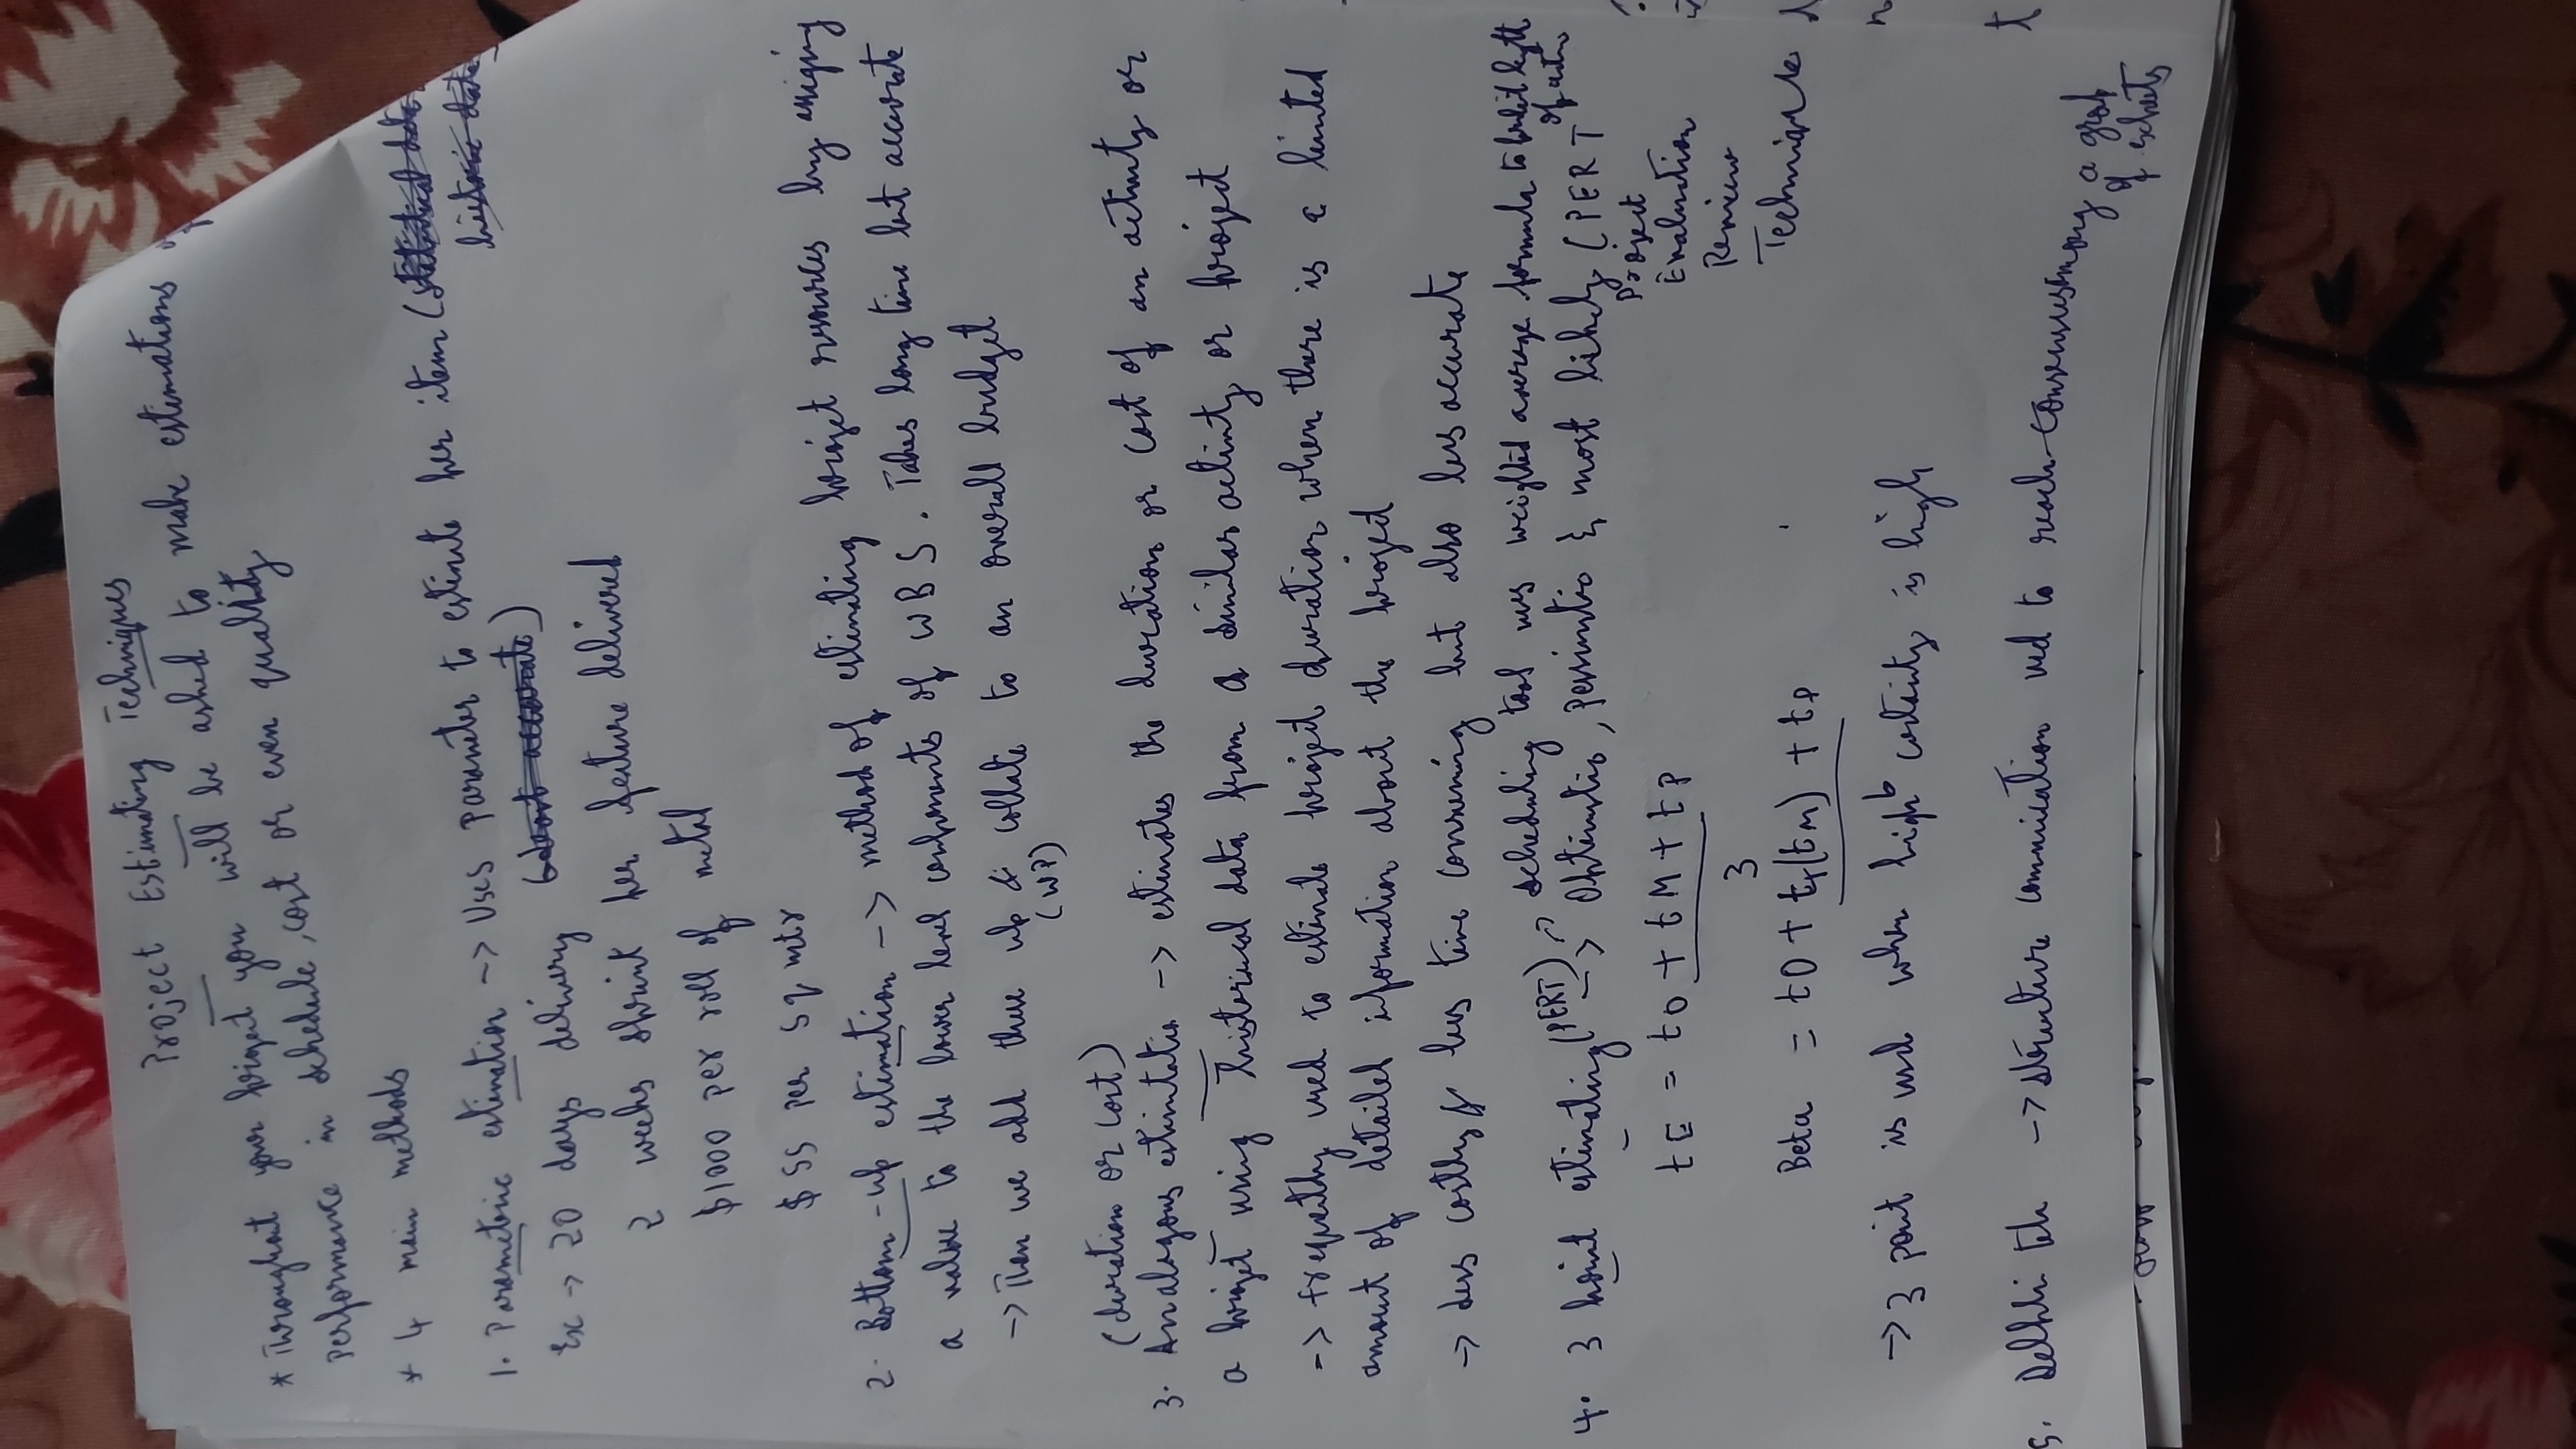 Project Estimating Techniques
* Throughout your project you will be asked to make estimations of
Performance in schedule, cost or even quality
* 4 main methods
1. Parametric estimation -> Uses Parameter to estimate per item (statistical data
historic data
Ex -> 20 days delivery (least accurate)
2 weeks sprint per feature delivered
$1000 per roll of metal
$55 per sq mtr
2. Bottom-up estimation -> method of estimating project resources by assigning
a value to the lower level components of WBS. Takes long time but accurate
-> Then we add these up & collate to an overall budget
(WP)
(duration or cost)
3. Analogous estimtatio -> estimates the duration or cost of an activity or
a project using historical data from a similar activity or project
-> frequently used to estimate project duration when there is a limited
amount of detailed information about the project
-> Less costly & less time consuming but also less accurate
(PERT) -> scheduling tool uses weighted average formula to predict length
4. 3 point estimating -> Optimistic, Pessimistic & most likely (PERT
Project
Evaluation
Review
Technique
tE = tO + tM + tP
3
Beta = tO + 4(tM) + tP
6
-> 3 point is used when high certainty is high
5. Delphi teh -> structure communication used to reach consensus among a group
of experts